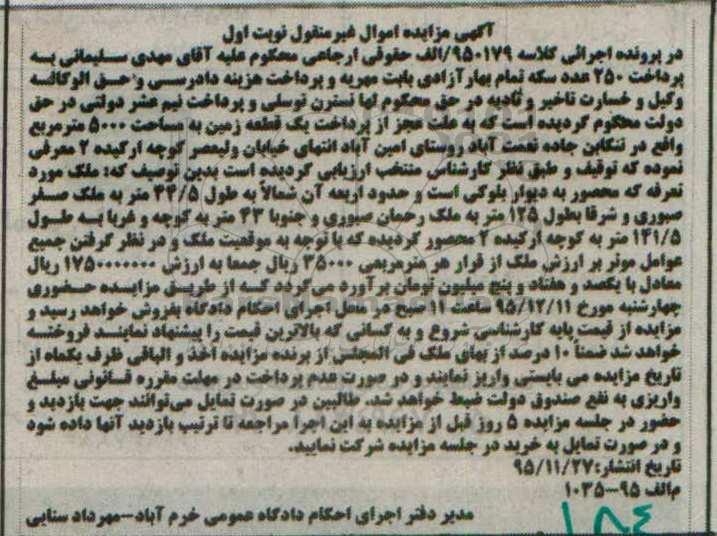 آگهی مزایده اموال غیرمنقول نوبت اول
در پرونده اجرائی کلاسه ۹۵۰۱۷۹/الف حقوقی ارجاعی محکوم علیه آقای مهدی سلیمانی به
پرداخت ۲۵۰ عدد سکه تمام بهارآزادی بابت مهریه و پرداخت هزینه دادرسی و حق الوکاله
وکیل و خسارت تاخیر و تادیه در حق محکوم لها نسترن توسلی و پرداخت نیم عشر دولتی در حق
دولت محکوم گردیده است که به علت عجز از پرداخت یک قطعه زمین به مساحت ۵۰۰۰ مترمربع
واقع در تنکابن جاده نعمت آباد روستای امین آباد انتهای خیابان ولیعصر کوچه ارکیده ۲ معرفی
نموده که توقیف و طبق نظر کارشناس منتخب ارزیابی گردیده است بدین توصیف که: ملک مورد
تعرفه که محصور به دیوار بلوکی است و حدود اربعه آن شمالاً به طول ۳۴/۵ متر به ملک صفر
صبوری و شرقا بطول ۱۲۵ متر به ملک رحمان صبوری و جنوبا ۴۳ متر به کوچه و غربا به طول
۱۴۱/۵ متر به کوچه ارکیده ۲ محصور گردیده که با توجه به موقعیت ملک و در نظر گرفتن جمیع
عوامل موثر بر ارزش ملک از قرار هر مترمربعی ۳۵۰۰۰ ریال جمعا به ارزش ۱۷۵۰۰۰۰۰۰۰ ریال
معادل با یکصد و هفتاد و پنج میلیون تومان برآورد می‌گردد که از طریق مزایده حضوری
چهارشنبه مورخ ۹۵/۱۲/۱۱ ساعت ۱۱ صبح در محل اجرای احکام دادگاه بفروش خواهد رسید و
مزایده از قیمت پایه کارشناسی شروع و به کسانی که بالاترین قیمت را پیشنهاد نمایند فروخته
خواهد شد ضمناً ۱۰ درصد از بهای ملک فی المجلس از برنده مزایده اخذ و الباقی ظرف یکماه از
تاریخ مزایده می بایستی واریز نمایند و در صورت عدم پرداخت در مهلت مقرره قانونی مبلغ
واریزی به نفع صندوق دولت ضبط خواهد شد. طالبین در صورت تمایل می‌توانند جهت بازدید و
حضور در جلسه مزایده ۵ روز قبل از مزایده به این اجرا مراجعه تا ترتیب بازدید آنها داده شود
و در صورت تمایل به خرید در جلسه مزایده شرکت نمایید.
تاریخ انتشار: ۹۵/۱۱/۲۷
م/الف ۹۵-۱۰۳۵
مدیر دفتر اجرای احکام دادگاه عمومی خرم آباد-مهرداد سنایی
۱۸۴